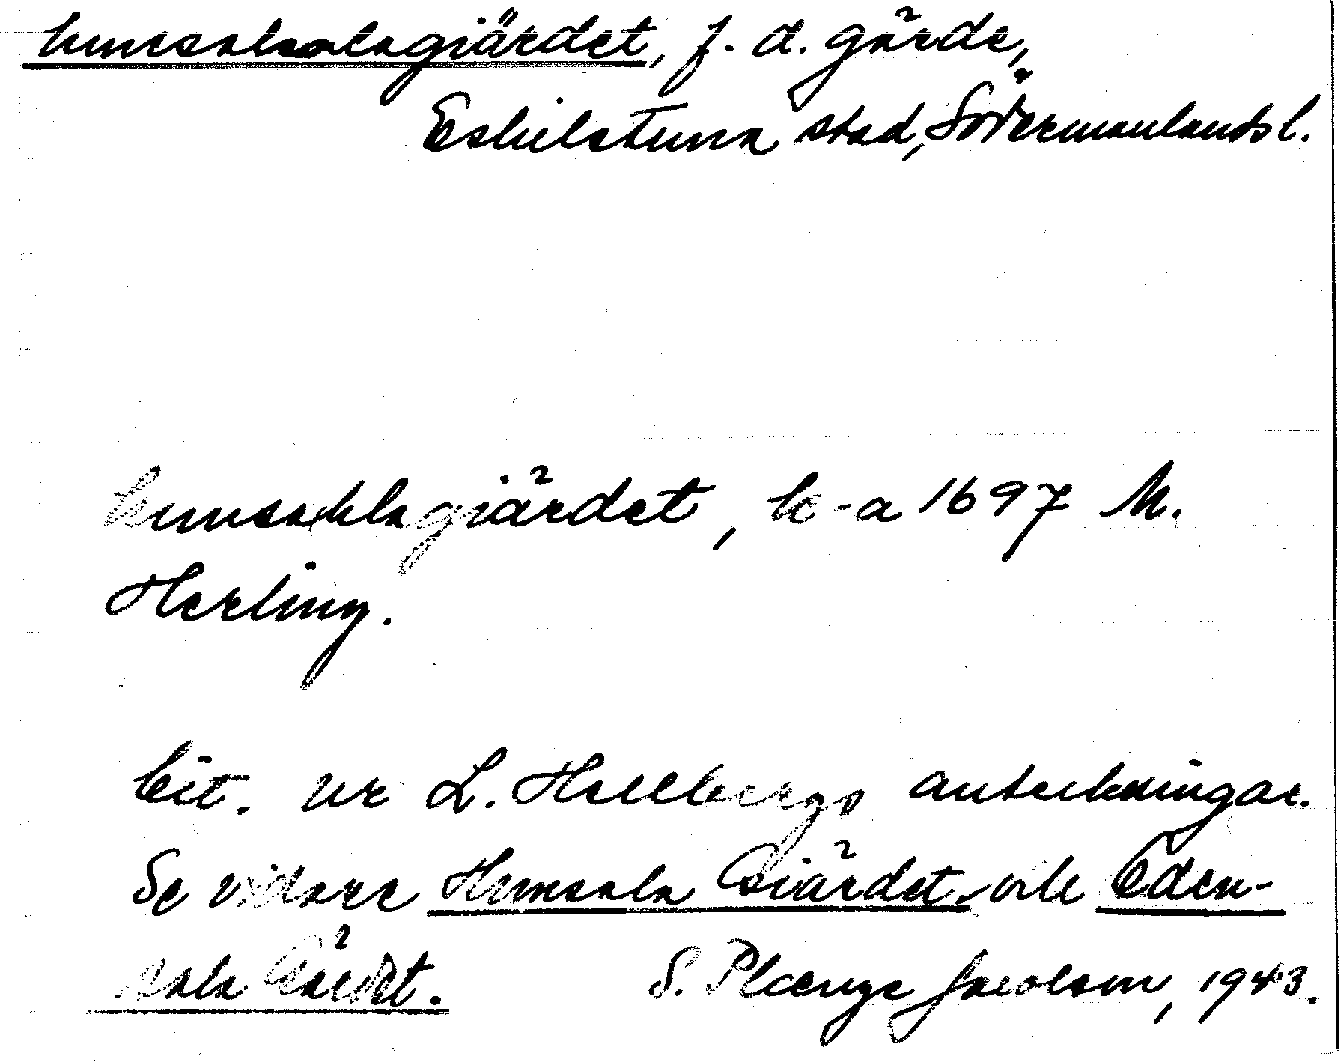 hunsalaalagiärdet, f. d. gärde,
Eskilstuna stad, Södermanlands l.
hunsahlagiärdet, k-a 1697 M.
Herling.
Cit. ur L. Hellbergs anteckningar.
Se vidare Hunsala Giärdet och Eden-
sala Gärdet.
S. Plænge Jacobson, 1943.